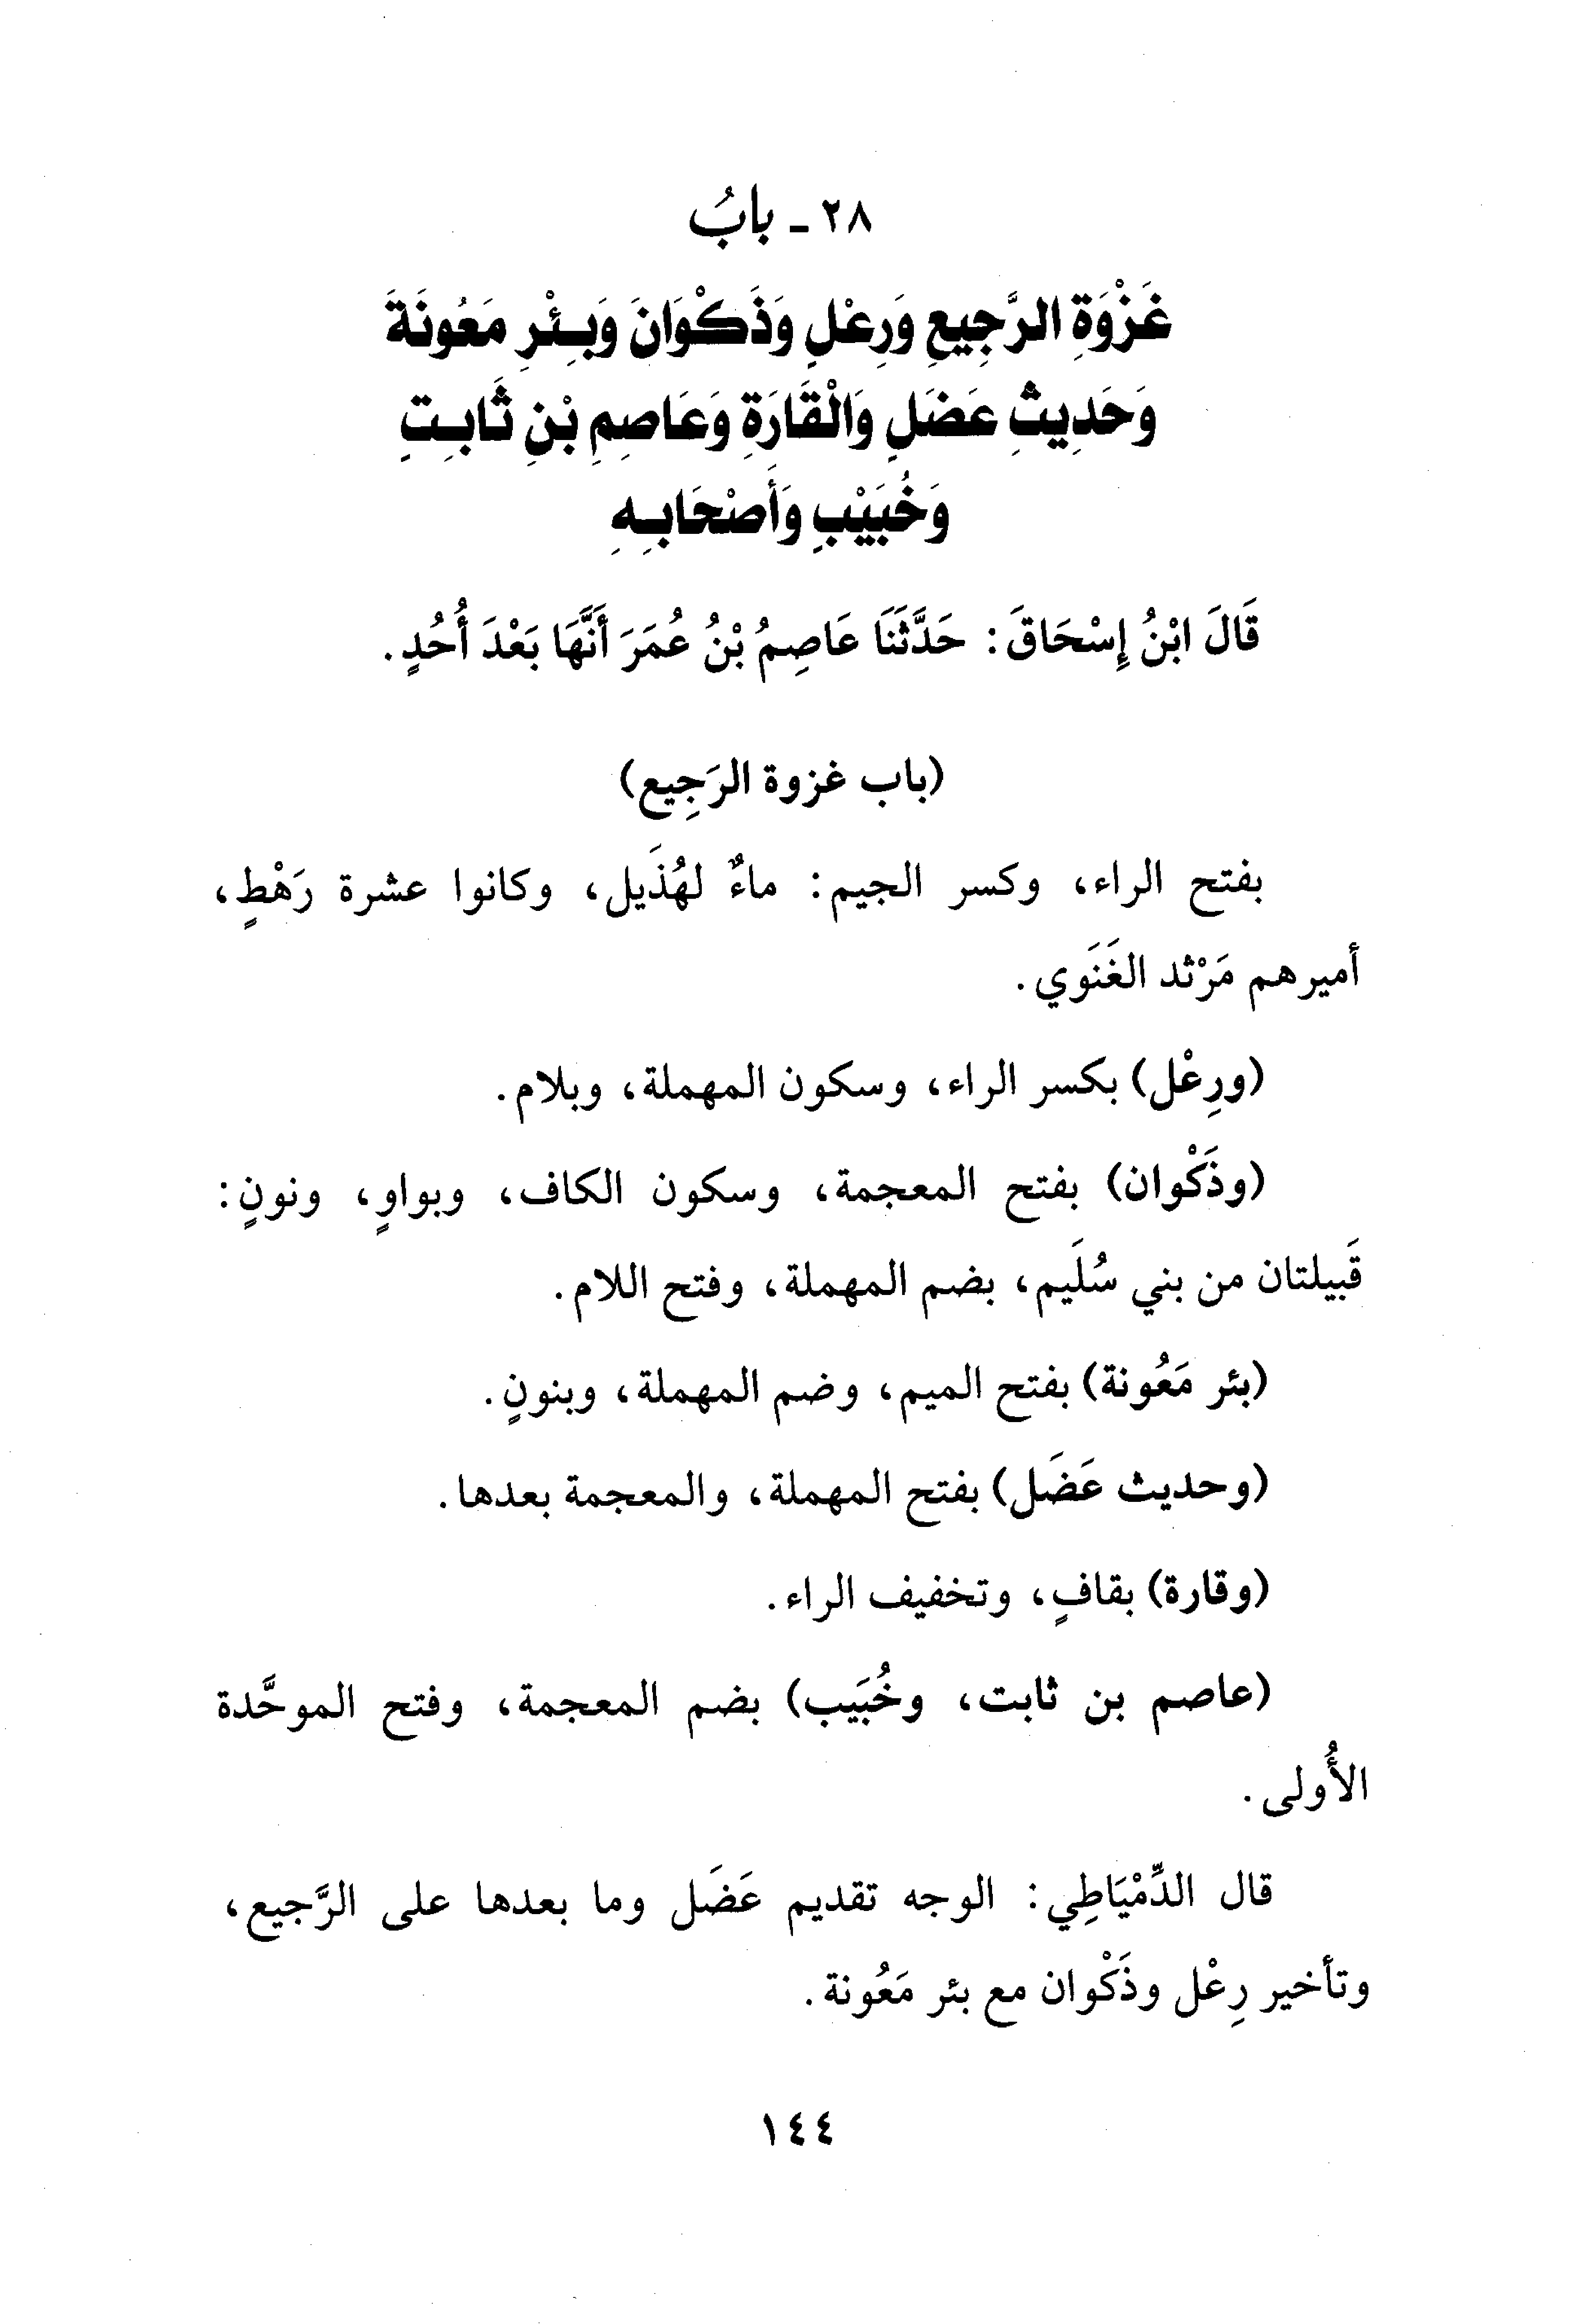 ٢٨ - بابُ
غَزْوَةِ الرَّجِيعِ وَرِعْلٍ وَذَكْوَانَ وَبِئْرِ مَعُونَةَ
وَحَدِيثِ عَضَلٍ وَالْقَارَةِ وَعَاصِمِ بْنِ ثَابِتٍ
وَخُبَيْبٍ وَأَصْحَابِهِ
قَالَ ابْنُ إِسْحَاقَ: حَدَّثَنَا عَاصِمُ بْنُ عُمَرَ أَنَّهَا بَعْدَ أُحُدٍ.
(باب غزوة الرَجِيع)
بفتح الراء، وكسر الجيم: ماءٌ لهُذَيل، وكانوا عشرة رَهْطٍ،
أميرهم مَرْثد الغَنَوي.
(ورِعْل) بكسر الراء، وسكون المهملة، وبلام.
(وذَكْوان) بفتح المعجمة، وسكون الكاف، وبواوٍ، ونونٍ:
قَبيلتان من بني سُلَيم، بضم المهملة، وفتح اللام.
(بئر مَعُونة) بفتح الميم، وضم المهملة، وبنونٍ.
(وحديث عَضَل) بفتح المهملة، والمعجمة بعدها.
(وقارة) بقافٍ، وتخفيف الراء.
(عاصم بن ثابت، وخُبَيب) بضم المعجمة، وفتح الموحَّدة
الأُولى.
قال الدِّمْيَاطِي: الوجه تقديم عَضَل وما بعدها على الرَّجيع،
وتأخير رِعْل وذَكْوان مع بئر مَعُونة.
١٤٤